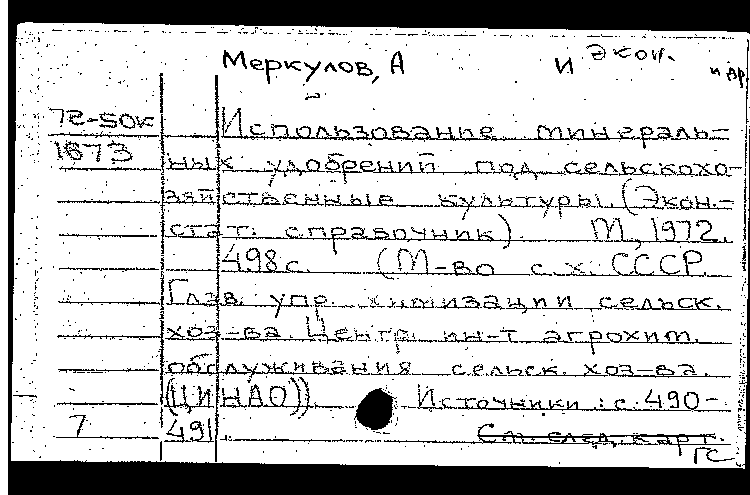 Меркулов, А и экон. и др
72-50к Использование минераль-
1673 ных удобрений под сельскохо-
зяйственные культуры. (Экон.-
стат. справочник). М, 1972.
498с. (М-во с.х. СССР.
Глав. упр. химизации сельск.
хоз-ва. Центр. ин-т агрохим.
обслуживания сельск. хоз-ва.
(ЦИНАО)). Источники: с. 490-
7 491. См. след. карт.
ГС